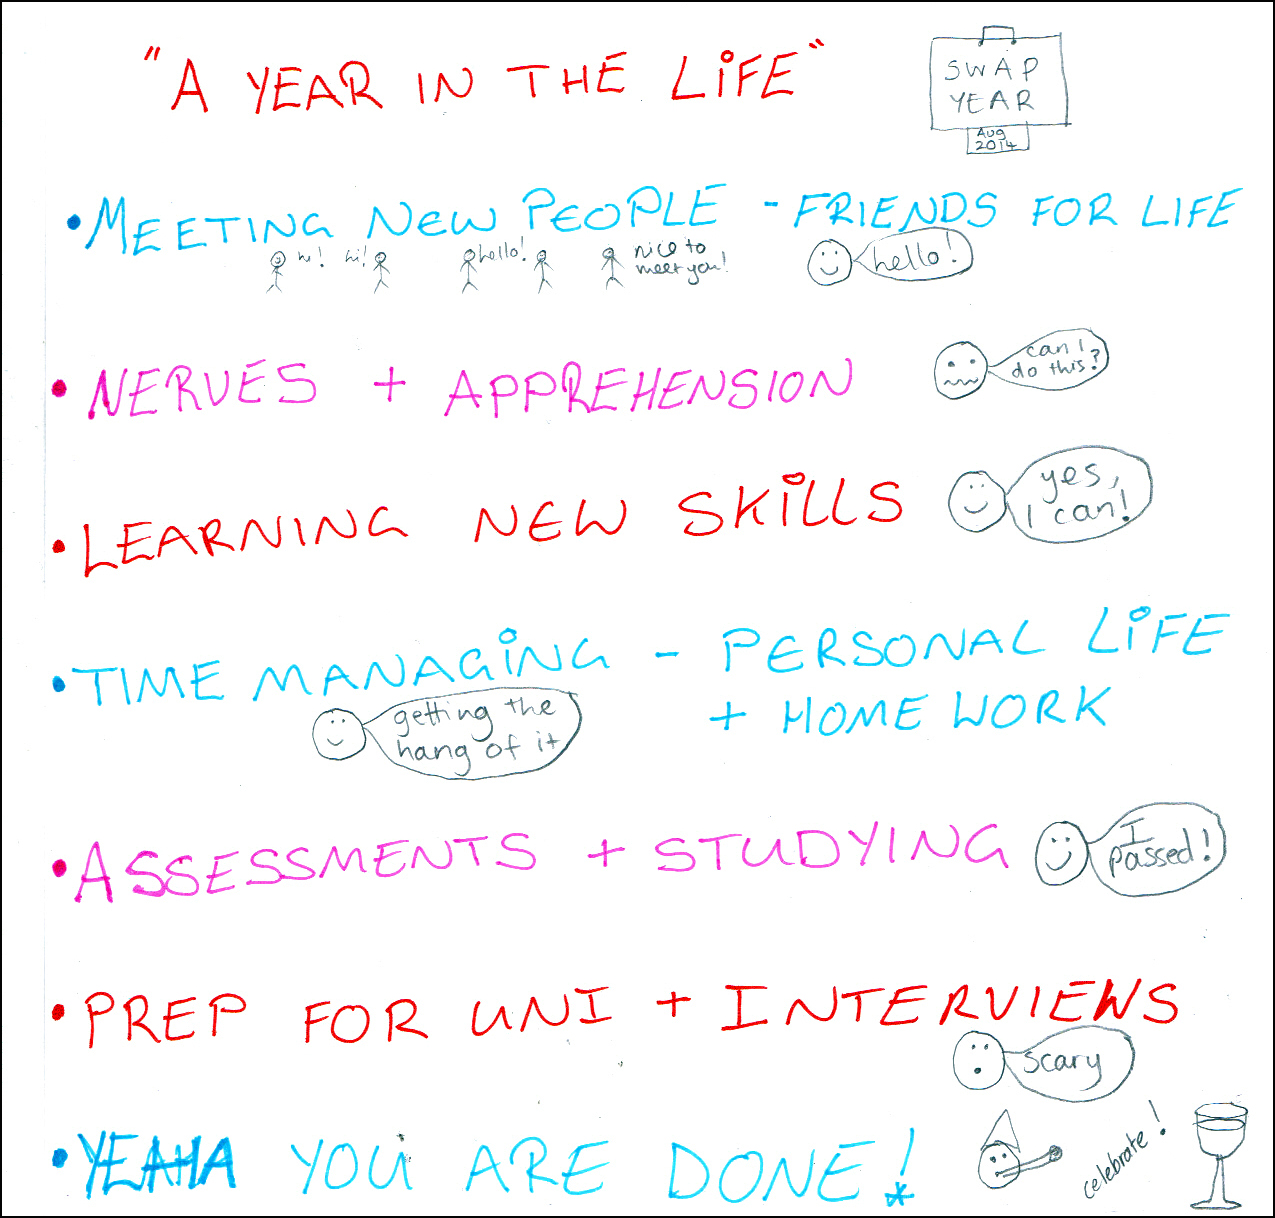 "A YEAR IN THE LiFE"
SWAP
YEAR
Aug
2014
• MEETING NEW PEOPLE - FRIENDS FOR LIFE
hi! hi! hello! nice to
meet you!
hello!
• NERVES + APPREHENSION
can I
do this?
• LEARNING NEW SKiLLS
yes,
I can!
• TIME MANAGiNG - PERSONAL LiFE
+ HOME WORK
getting the
hang of it
• ASSESSMENTS + STUDYING
I
passed!
• PREP FOR UNI + INTERVIEWS
scary
• YEAHA YOU ARE DONE!
celebrate!